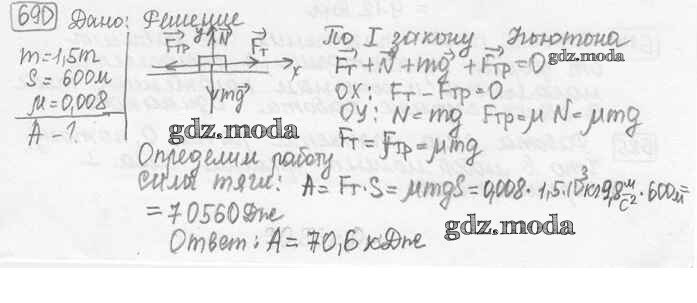 690 Дано: Решение
m=1,5т
S=600м
μ=0,008
A-?
Fтр y N Fт x
mg
По I закону Ньютона
gdz.moda
Fт + N + mg + Fтр = 0
OX: Fт - Fтр = 0
OY: N = mg Fтр = μN = μmg
Fт = Fтр = μmg
gdz.moda
Определим работу
силы тяги: A = Fт·S = μmgS = 0,008·1,5·10³кг·9,8 м/с²·600м =
= 70560 Дж
Ответ: A = 70,6 кДж
gdz.moda